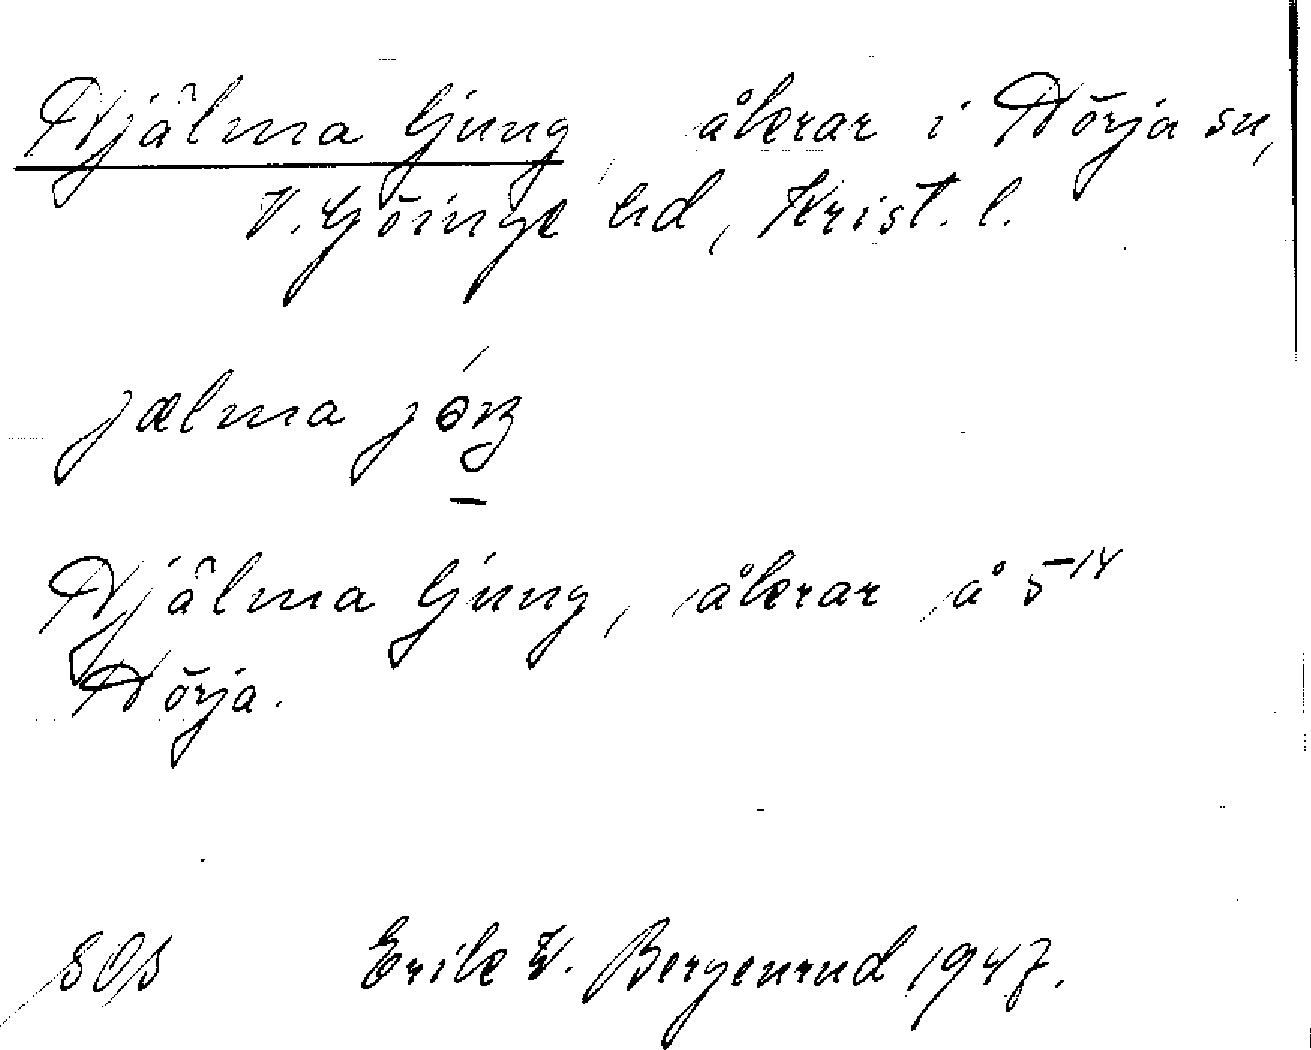 Hjälma ljung, åkrar i Hörja sn,
V. Göinge hd, Krist. l.
jælma jɵ́ŋ
Hjälma ljung, åkrar å 5¹⁴
Hörja.
SOS Erik Bergenrud 1947.